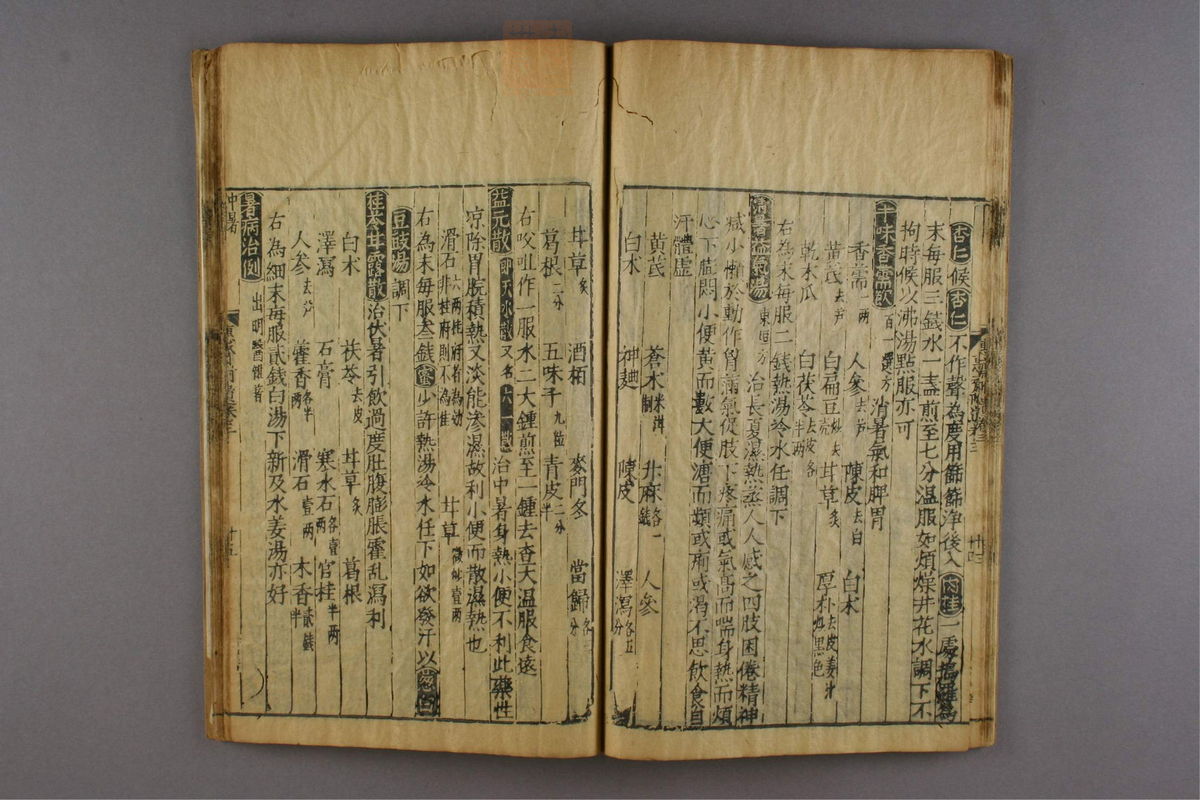 杏仁候杏仁不作聲為度用篩篩淨後入肉桂一處搗羅為
末每服三錢水一盞煎至七分温服如煩燥井花水調下不
拘時候以沸湯點服亦可
十味香薷飲 百一選方 消暑氣和脾胃
香薷一兩 人參去芦 陳皮去白 白术
黃芪去芦 白扁豆炒去 甘草炙 厚朴去皮姜汁炙黑色
乾木瓜 白茯苓去皮各半兩
右為末每服二錢熱湯冷水任調下
清暑益氣湯 東垣方 治長夏濕熱蒸人人感之四肢困倦精神
減小懶於動作胷滿氣促肢下疼痛或氣高而喘身熱而煩
心下膨悶小便黃而數大便溏而頻或痢或渴不思飲食自
汗體虛
黃芪 蒼术米泔制 升麻各一錢 人參
白术 神麯 陳皮 澤瀉各五分
甘草炙 酒栢 麥門冬 當歸各三分
葛根二分 五味子九粒 青皮二分半
右㕮咀作一服水二大鍾煎至一鍾去柤大温服食遠
益元散 即天水散 又名六一散 治中暑身熱小便不利此藥性
凉除胃脘積熱又淡能滲濕故利小便而散濕熱也
滑石六兩桂府者為㓛非桂府則不為佳 甘草微炒壹兩
右為末每服叁錢蜜少許熱湯冷水任下如欲發汗以葱白
豆豉湯調下
桂苓甘露散 治伏暑引飲過度肚腹膨脹霍乱瀉利
白术 茯苓去皮 甘草炙 葛根
澤瀉 石膏 寒水石各壹兩 官桂半兩
人參去芦 藿香各半兩 滑石壹兩 木香貳錢半
右為細末每服貳錢白湯下新及水姜湯亦好
暑病治例 出明醫雜著
中暑
十五